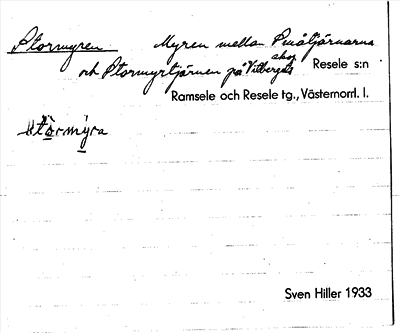 Stormyren Myren mellan Småtjärnarna
och Stormyrtjärnen på Vitbergets skog Resele s:n
Ramsele och Resele tg., Västernorrl. l.
stòrmýra
Sven Hiller 1933